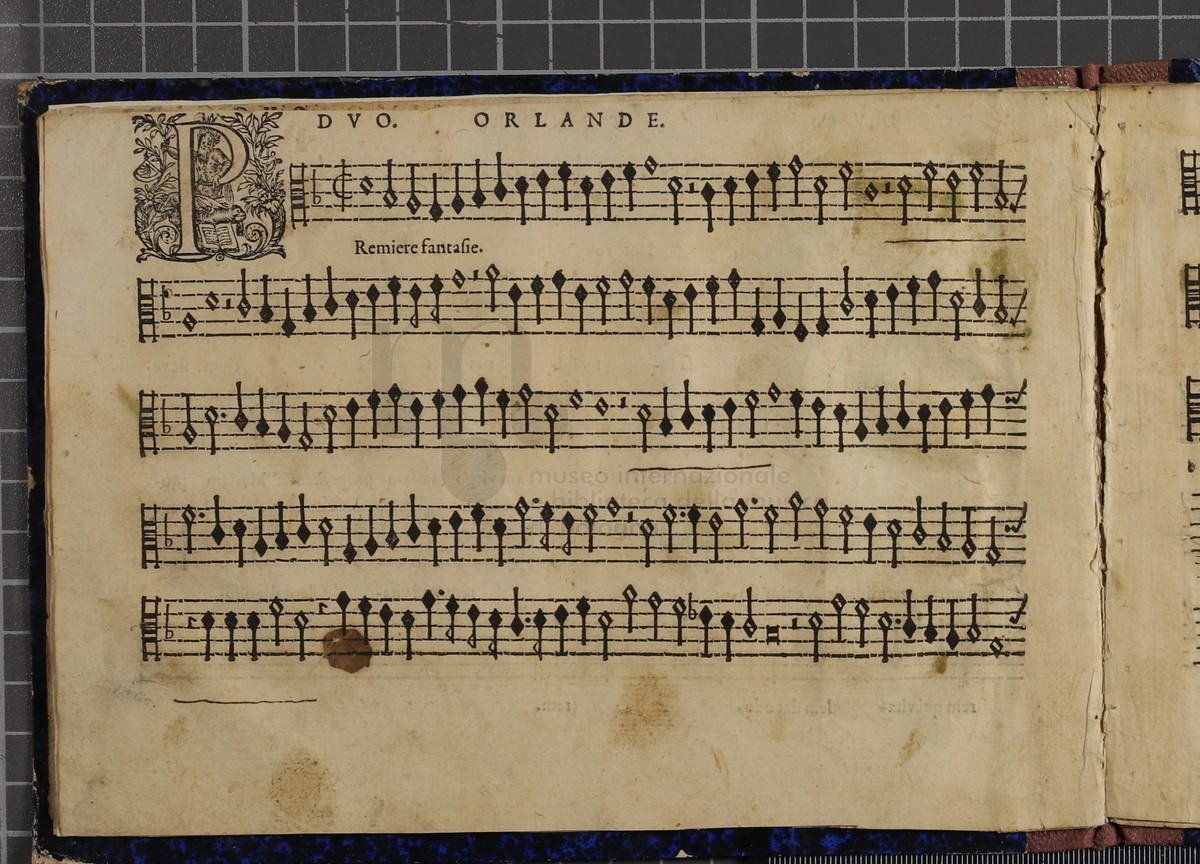 DVO. ORLANDE.
PRemiere fantaſie.
museo internazionale
biblioteca della musica